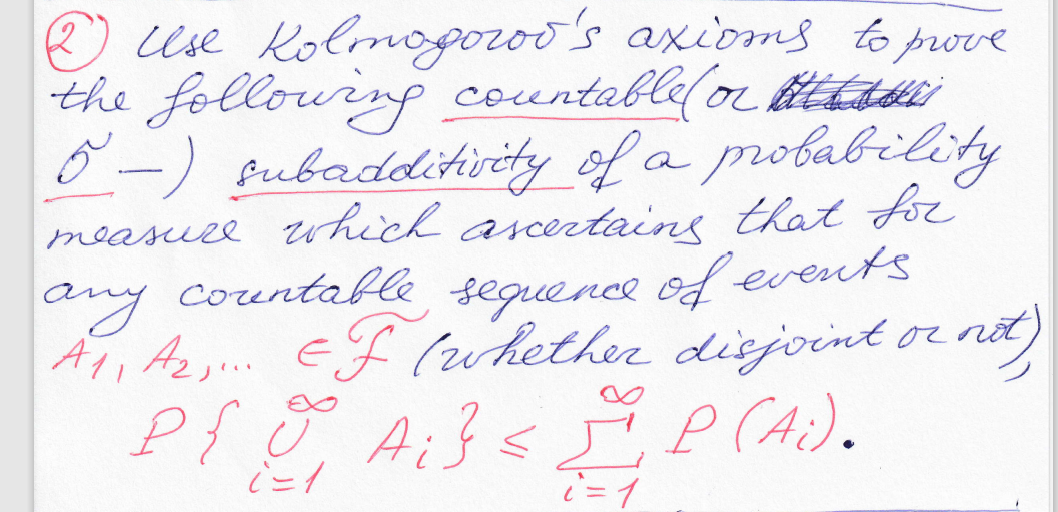 ② Use Kolmogorov's axioms to prove
the following countable (or
σ-) subadditivity of a probability
measure which ascertains that for
any countable sequence of events
A₁, A₂, ... ∈ ℱ (whether disjoint or not),
P{ ∞∪i=1 Aᵢ} ≤ ∞∑i=1 P(Aᵢ).